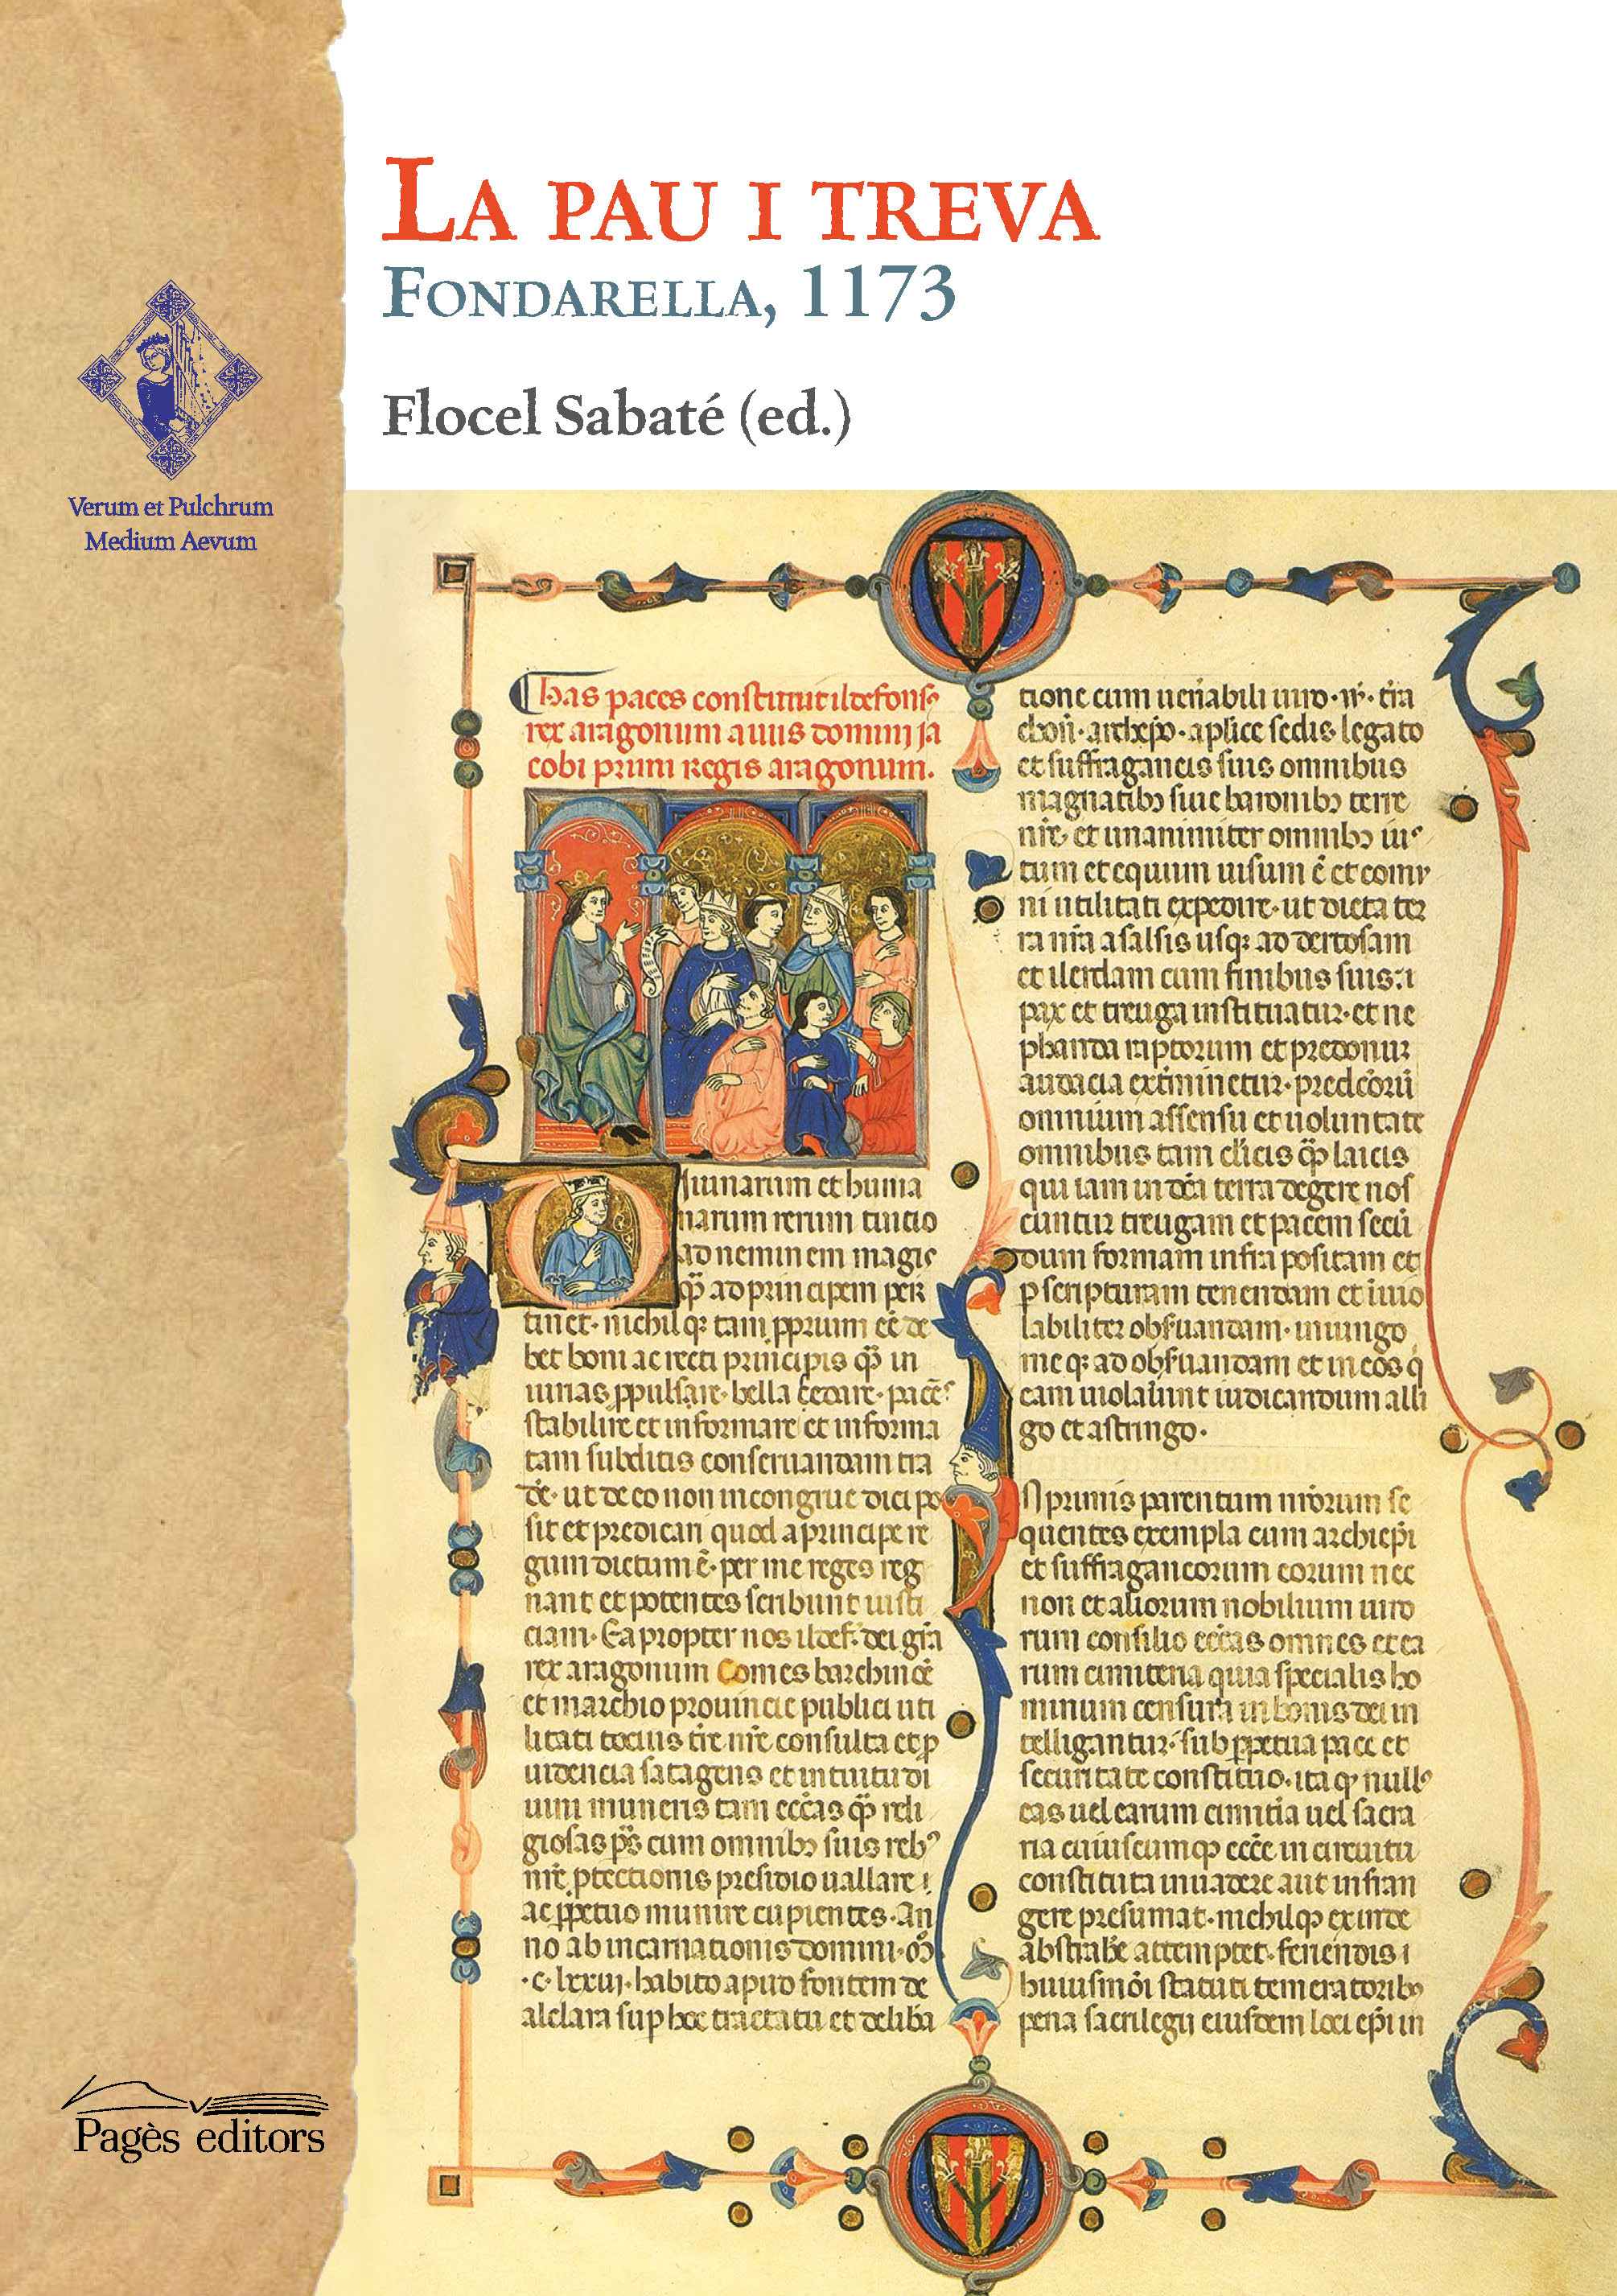 La pau i treva
Fondarella, 1173
Flocel Sabaté (ed.)
Verum et Pulchrum
Medium Aevum
has paces constituit ildefons
rex aragonum auus domini ja
cobi primi regis aragonum.
Diuinarum et huma
narum rerum tuicio
ad neminem magis
qͣ ad principem peri
tinet· nichilqꝫ tam ꝓprium eē de
bet boni ac recti principis qͣ in
iurias ꝓpulsare· bella cedare· paceꝫ
stabilire et informare et informa
tam subditis conseruandam tra
de· ut de eo non incongrue dici po
sit et predicari quod a principe re
gum dictum ē· per me reges reg
nant et potentes scribunt iusti
ciam· Ea propter nos ildef· dei grā
rex aragonum Comes barchinoē
et marchio prouincie publici uti
litati tocius tr̄e nr̄e consulta et ꝓ
uidencia satagens et intuitu di
uini muneris tam ecc̄as qͣ reli
giosas ꝑs̄ cum omnibꝫ suis rebꝰ
nr̄e ꝓtectionis presidio uallare ⁊
ac ꝑpetuo munire cupientes· An
no ab incarnationis domini· oͦ
·c· lxxiij· habito apud fontem de
aldara sup hoc tractatu et deliba
tione cum uen̄abili uiro· w· tr̄a
chon̄· archep̄o· aplice sedis legato
et suffraganeis suis omnibus
magnatibꝫ siue baronibꝫ terre
nr̄e· et unanimiter omnibꝫ iuſ
tum et equum uisum ē et comu
ni utilitati expedire· ut dicta ter
ra nr̄a a salsis usqꝫ ad dertosam
et ilerdam cum finibus suis·⁊
pax et treuga instituatur· et ne
phanda raptorum et predonum
audacia extiminetur· predc̄orū
omnium assensu et uoluntate
omnibus tam cl̄icis qͣ laicis
qui iam in dc̄a terra degere nos
cuntur treugam et pacem secū
dum formam infra positam et
ꝑ scripturam tenendam et inuio
labiliter obs̄uandam· iniungo
me qꝫ ad obs̄uandam et in eos q̄
eam uiolau̅int iudicandum alli
go et astringo·
In primis parentum nr̄orum se
quentes exempla cum archiep̄i
et suffraganeorum eorum nec
non et aliorum nobilium uiro
rum consilio ecc̄as omnes et ea
rum cimiteria quia specialis ho
minum censura in bonis dei in
telligantur· sub ꝑpetua pace et
securitate constituo· ita qꝫ nullꝰ
eas uel earum cimit̄ia uel sacra
ria cuiuscumqꝫ ecc̄e in circuitu
constituta inuadere aut infran
gere presumat· nichilqꝫ exinde
abstrahe attemptet· feriendis ⁊
huiusmōi statuti temeratoribꝫ
pena sacrilegij eiusdem loci ep̄i in
Pagès editors